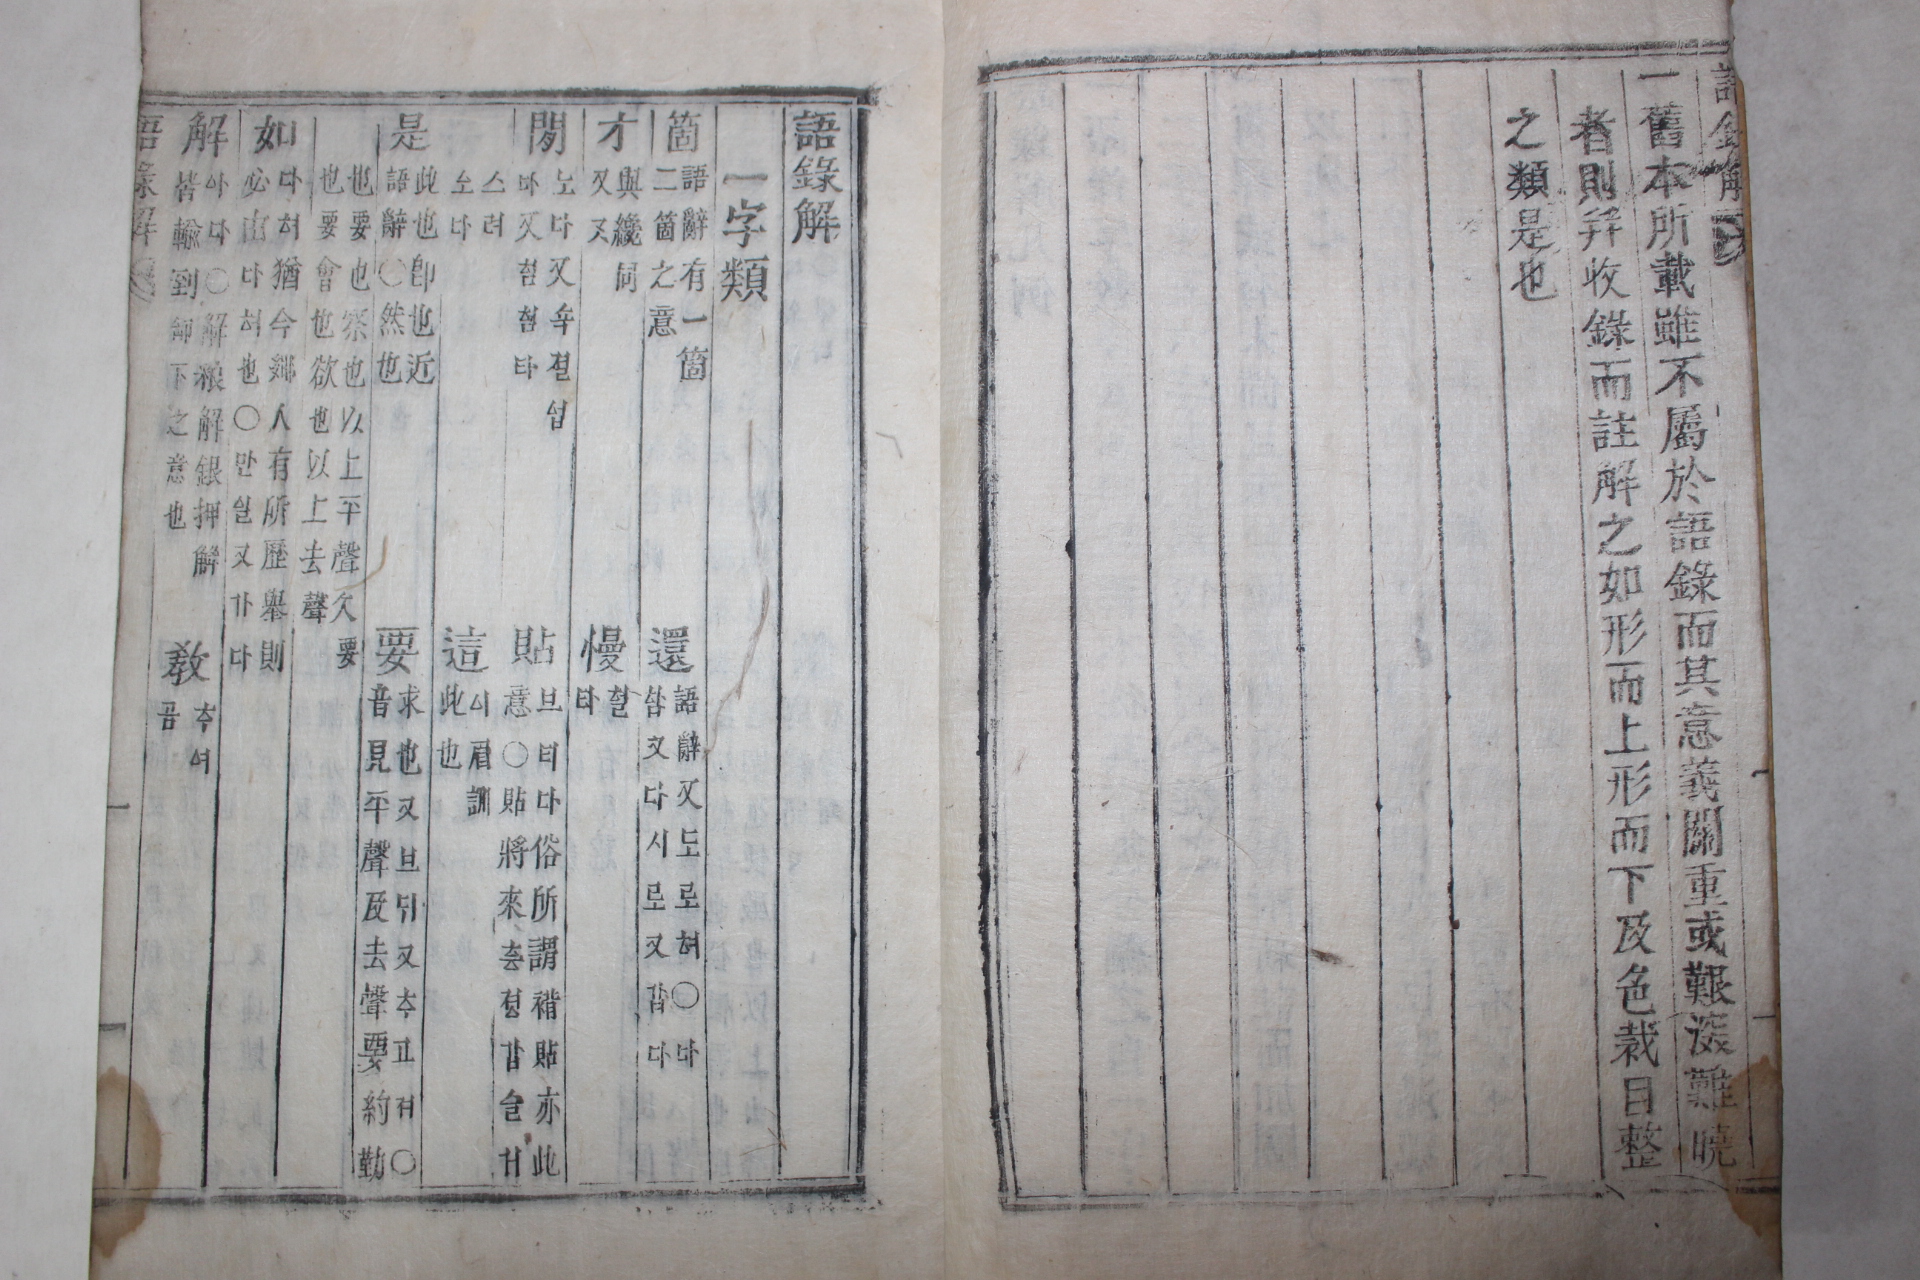 語錄解
一舊本所載雖不屬於語錄而其意義關重或艱澁難曉
者則幷收錄而註解之如形而上形而下及色裁目整
之類是也
語錄解
一字類
箇 語辭有一箇 二箇之意
還 語辭又도로혀○다 함又다시로又갑다
才 與纔同 又又
慢 헐 타
閒 노다又슉졀업 다又혐혐타
貼 브티다俗所謂褙貼亦此 意○貼將來츄졍갑슬
스러 소다
這 이眉訓 此也
是 此也卽也近 語辭○然也
要 求也又브듸又추고져○ 音見平聲及去聲要約勤
也要也察也以上平聲久要 也要會也欲也以上去聲
如 다혀猶今鄕人有所歷擧則 必曰다혀也○만일又가다
解 아다○解粮解銀押解 皆輸到卸下之意也
敎 여 곰
語錄解